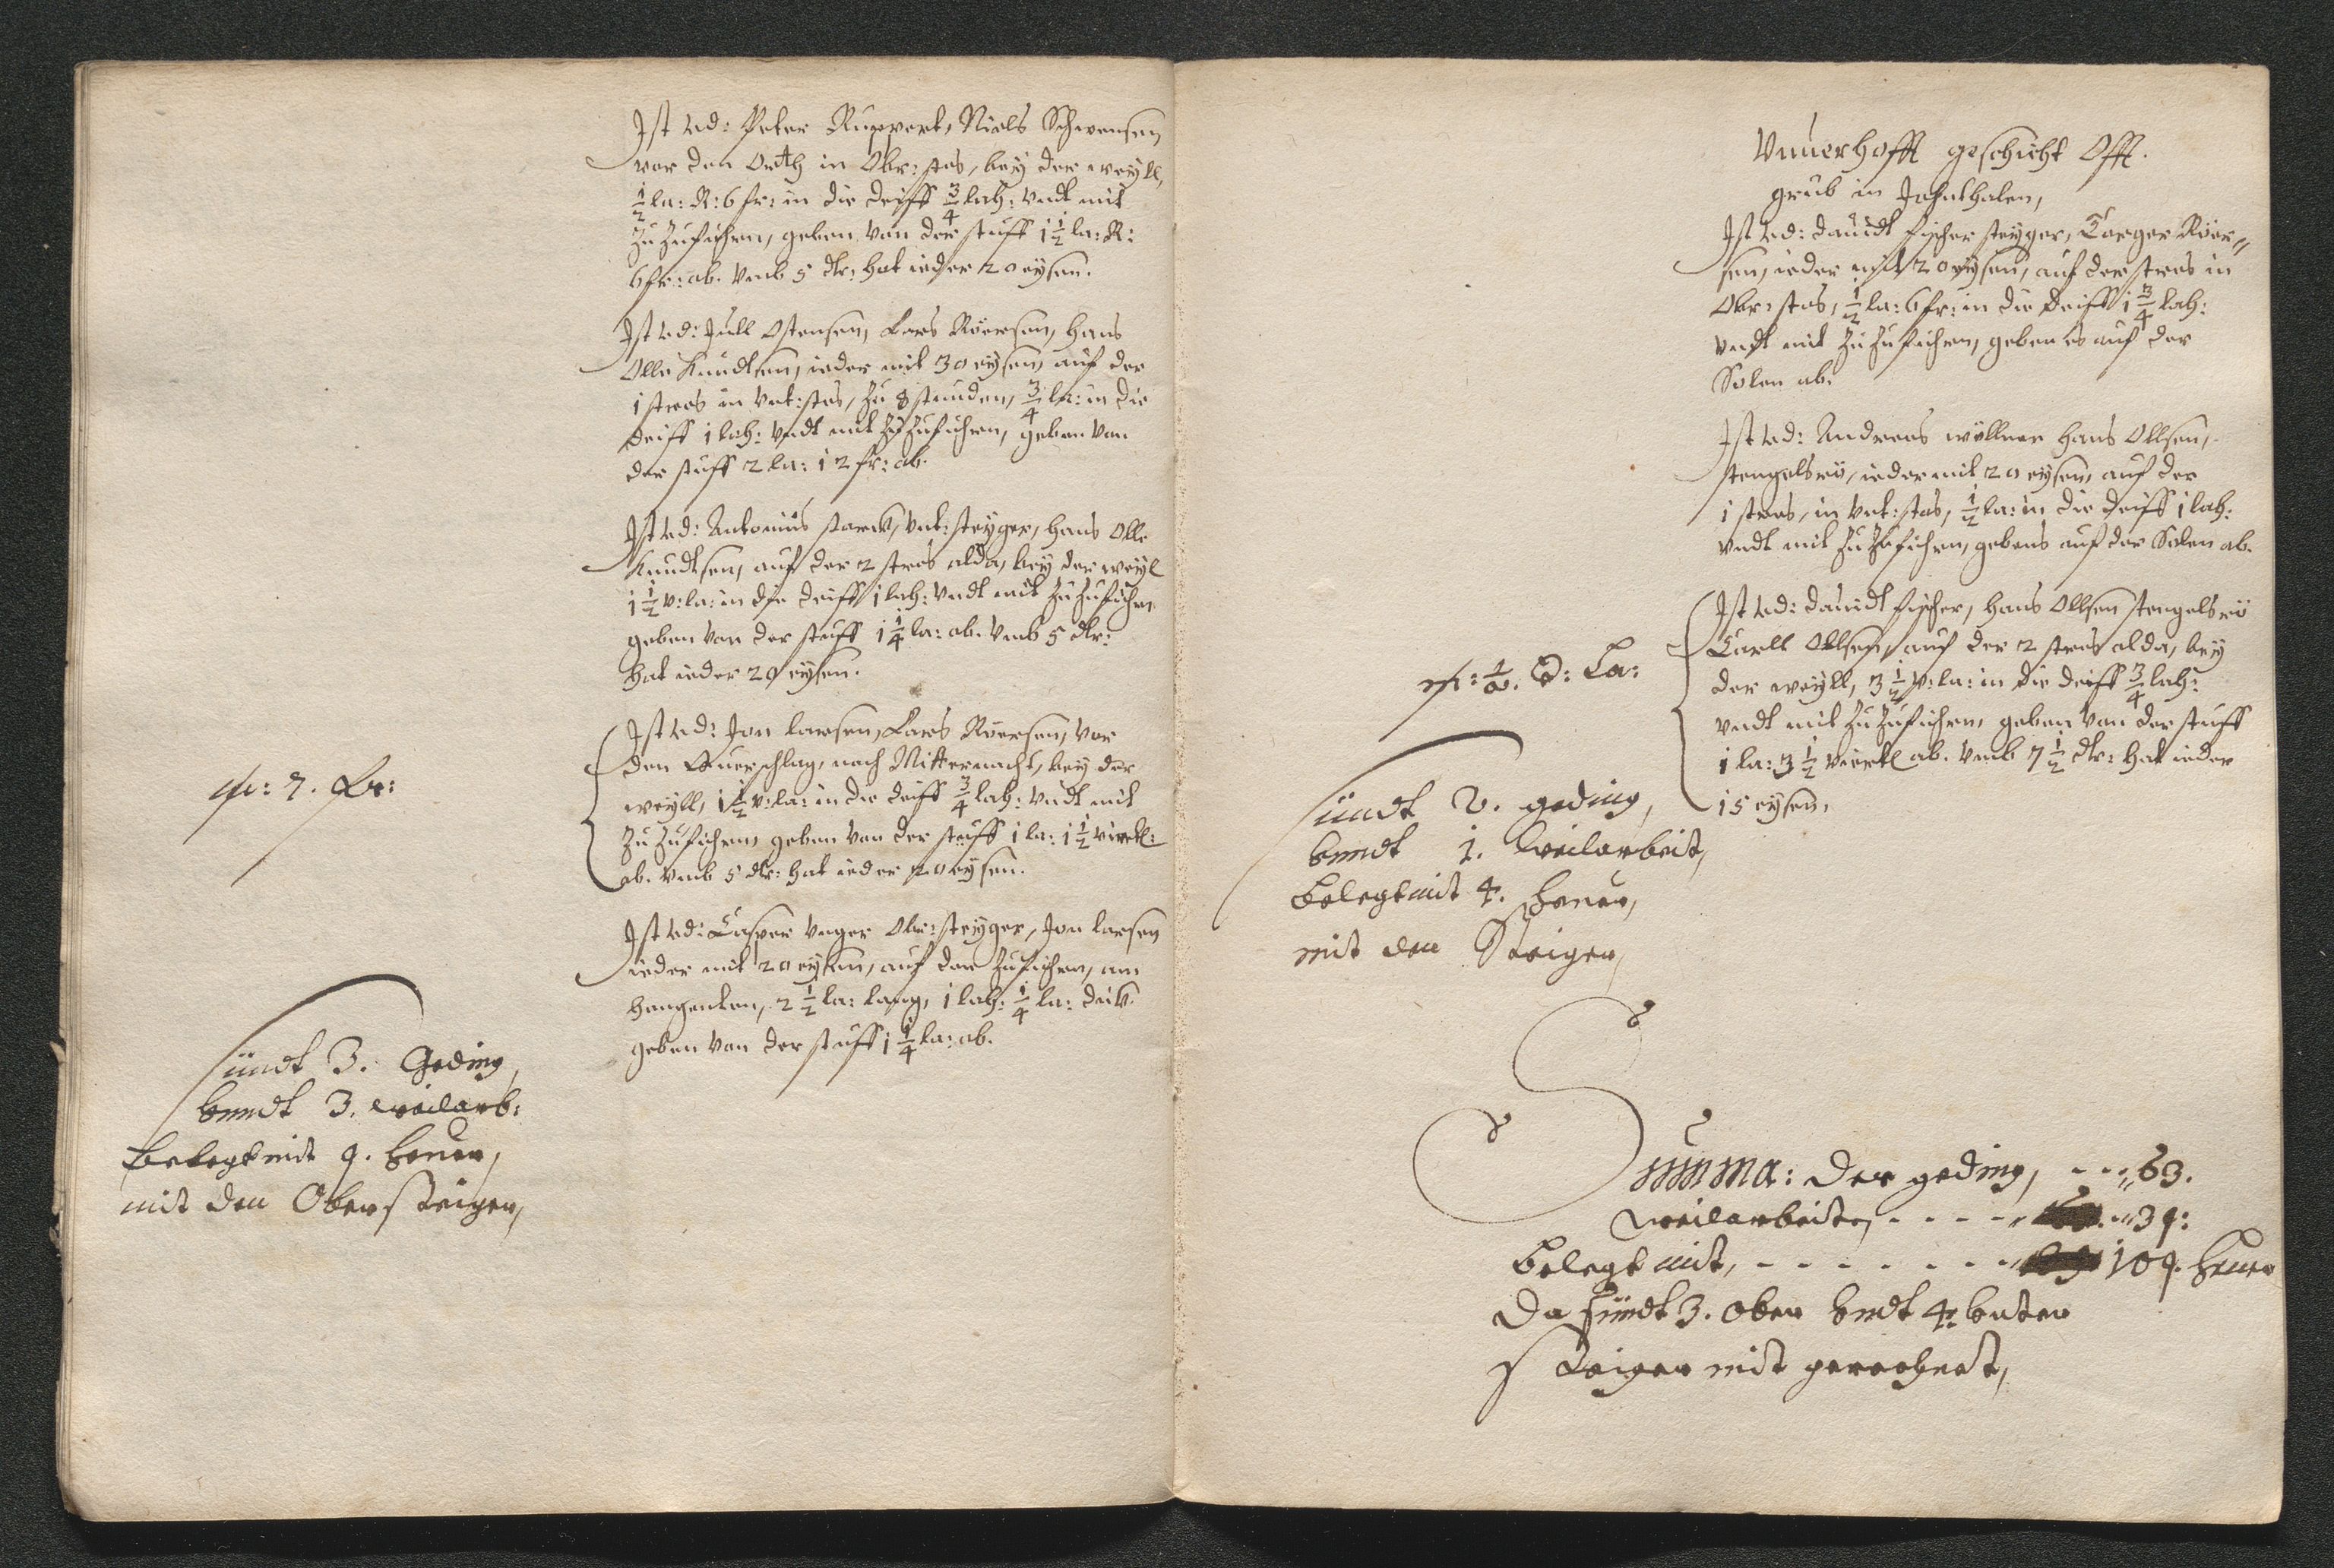 Ist ud: Peter Ruppert, Niels Schwensen,
vor den Orth in Obr: stos, bey der weyll,
1/2 la: R: 6 fr: in die deiff 3/4 lah: undt mit
Zu Zufuhren, geben von der stuff 1 1/2 la: R:
6 fr: ab. umb 5 dlr: hat ieder 20 eysen.
Ist ud: Jull Ostensen, Lars Röersen, Hans
Olle Knudtsen, ieder mit 30 eysen, auf der
1 stros in Unt: stos, Zu 8 stunden, 3/4 la: in die
deiff 1 lah: undt mit Zu Zufuhren, geben von
der stuff 2 la: 12 fr: ab.
Ist ud: Antonius starck, Unt: steyger, Hans Olle
Knudtsen, auf der 2 stros alda, bey der weyl
1 1/2 v: la: in die deiff 1 lah: undt mit Zu Zufuhrn
geben von der stuff 1 1/4 la: ab. umb 5 dlr:
hat ieder 20 eysen.
Ist ud: Jon larsen, Lars Röersen, vor
den Querschlag, nach Mitternacht, bey der
weyll, 1 1/2 v: la: in die deiff 3/4 lah: undt mit
Zu Zufuhren, geben von der stuff 1 la: 1 1/2 viertl:
ab. umb 5 dlr: hat ieder 20 eysen.
Ist ud: Casper Unger Obr: steyger, Jon larsen
ieder mit 20 eysen, auf der Zufuhren, am
hangenten, 2 1/2 la: lang, 1 lah: 1/4 la: dick
geben von der stuff 1 1/4 la: ab.
7. fr:
sindt 3. Geding,
vnndt 3. weilarb:
belegt mit 9. heuer,
mit den Obersteiger,
Unuerhofft geschicht Offt.
grub in Jahnthalen,
Ist ud: Dauidt fischer steyger, Torger Röer=
sen, ieder mit 20 eysen, auf der stros in
Obr: stos, 1/2 la: 6 fr: in die deiff 1 3/4 lah:
undt mit Zu Zufuhren, geben es auf der
Solen ab.
Ist ud: Andreas wöllner Hans Ollsen,
stengelsrö, ieder mit 20 eysen, auf der
1 stros, in Unt: stos, 1/2 la: in die deiff 1 lah:
undt mit Zu Zufuhren, gebens auf der Solen ab.
Ist ud: Dauidt fischer, Hans Ollsen stengelsrö
Carll Ollsen, auf der 2 stros alda, bey
der weyll, 3 1/2 v: la: in die deiff 3/4 lah:
undt mit Zu Zufuhren, geben von der stuff
1 la: 3 1/2 viertl ab. umb 7 1/2 dlr: hat ieder
15 eysen,
La:
sindt 2. geding,
vnndt 1. weilarbeit,
belegt mit 4. heuer,
mit den Steiger,
Summa: der geding, - - - 63.
weilarbeiten, - - - - 39:
Belegt mit, - - - - - - - 109. heuer
da sindt 3. ober vndt 4 vnter
steiger mit gerechnet,